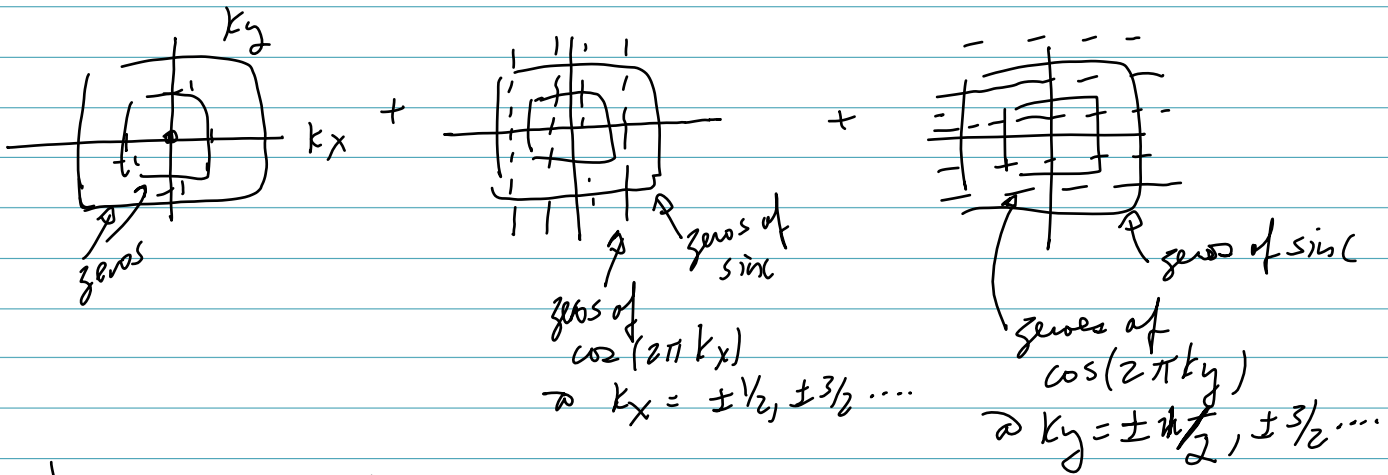 ky
kx
+
+
zeros
zeros of
sinc
zeros of
cos(2π kx)
@ kx = ±1/2, ±3/2 ....
zeros of sinc
zeroes of
cos(2πky)
@ ky = ± 1/2, ± 3/2 ....